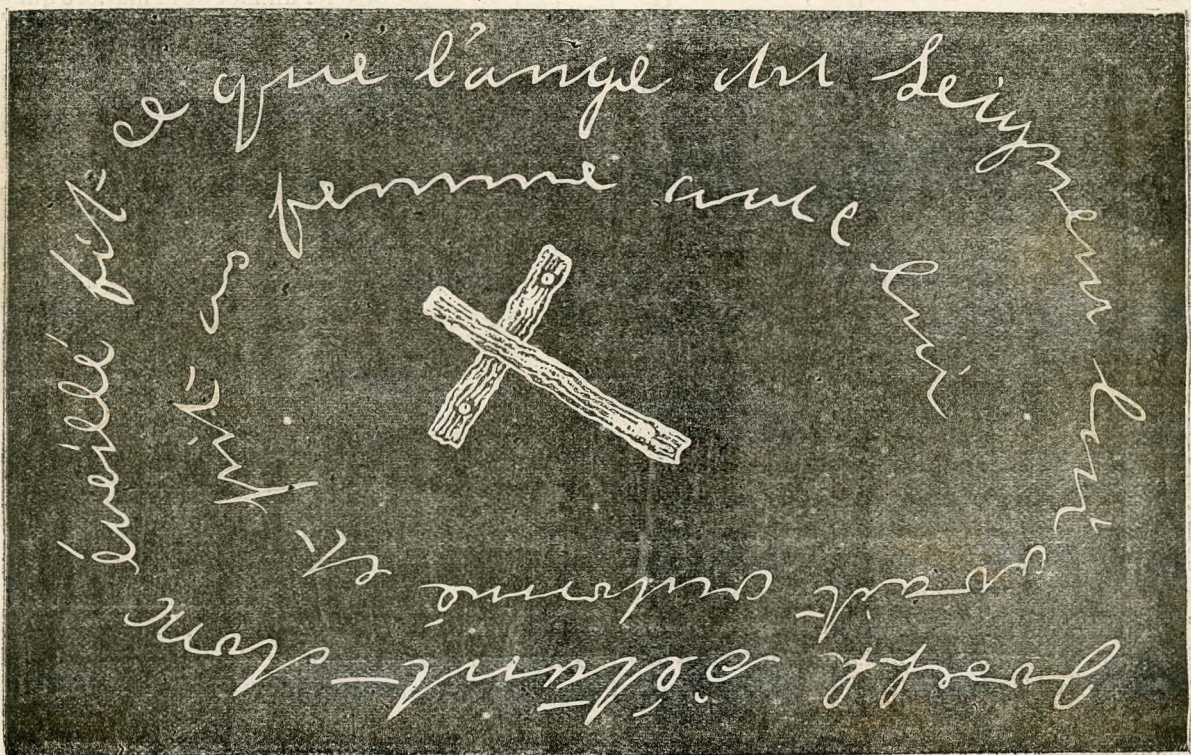 Joseph s'étant donc éveillé fit ce que l'ange du Seigneur lui avait ordonné et prit sa femme avec lui